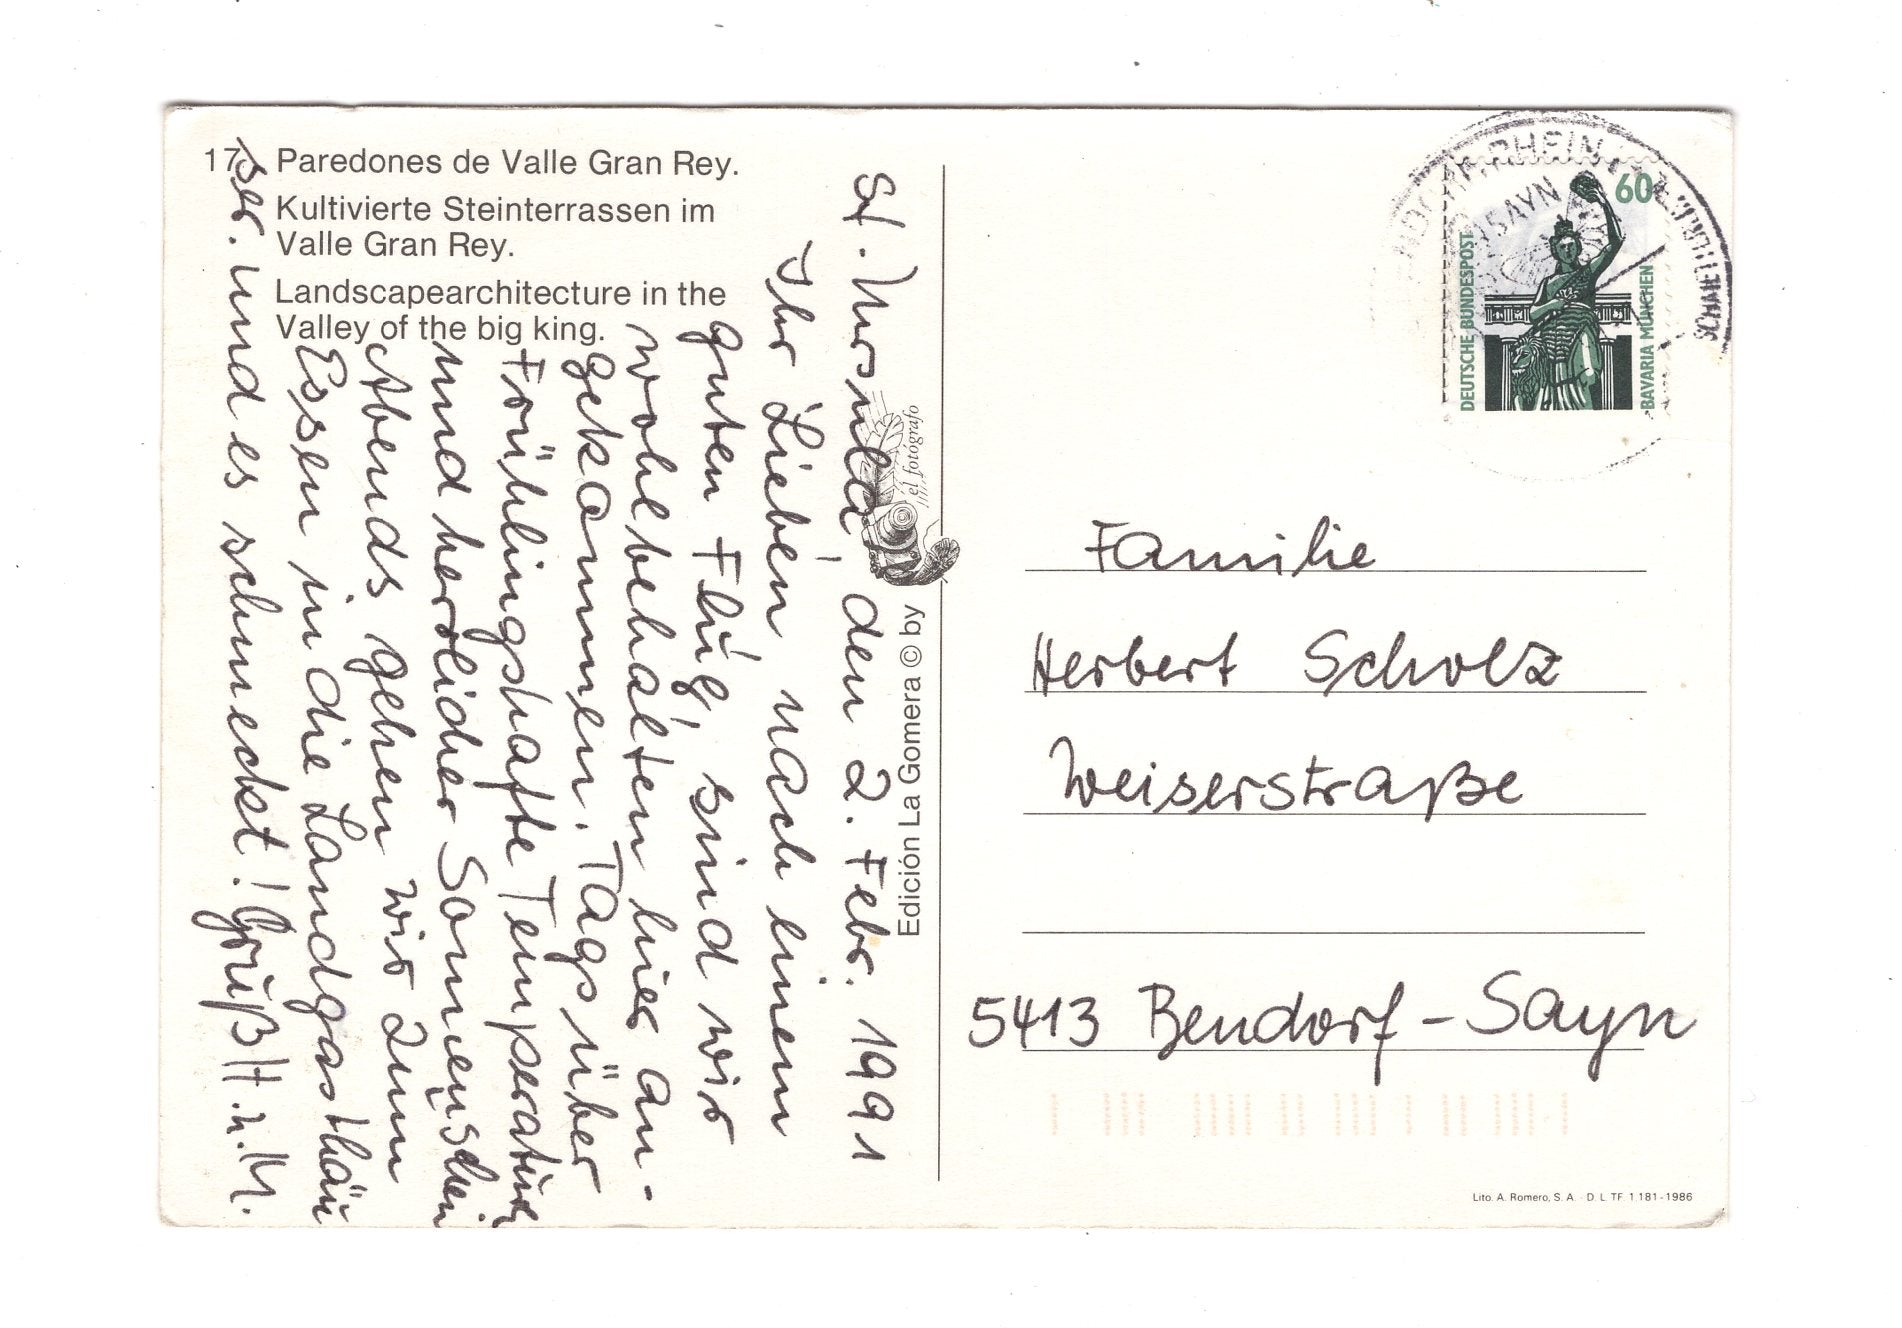 17. Paredones de Valle Gran Rey.
Kultivierte Steinterrassen im
Valle Gran Rey.
Landscapearchitecture in the
Valley of the big king.
St. Ursula, den 2. Febr. 1991
Ihr Lieben, nach einem
guten Flug, sind wir
wohlbehalten hier an-
gekommen. Tagsüber
Frühlingshafte Temperaturen
und herrlicher Sonnenschein
Abends gehen wir zum
Essen in die Landgasthäu
ser. und es schmeckt! Grüßt H. u. M.
el fotógrafo
Edición La Gomera © by
60
DEUTSCHE BUNDESPOST
BAVARIA MÜNCHEN
SAYN
Familie
Herbert Scholz
Weiserstraße
5413 Bendorf-Sayn
Lito. A. Romero, S. A. - D. L. TF. 1.181-1986